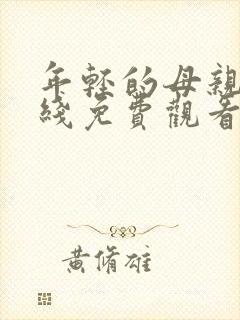 年輕的母親
綫免費觀看
黃脩雄